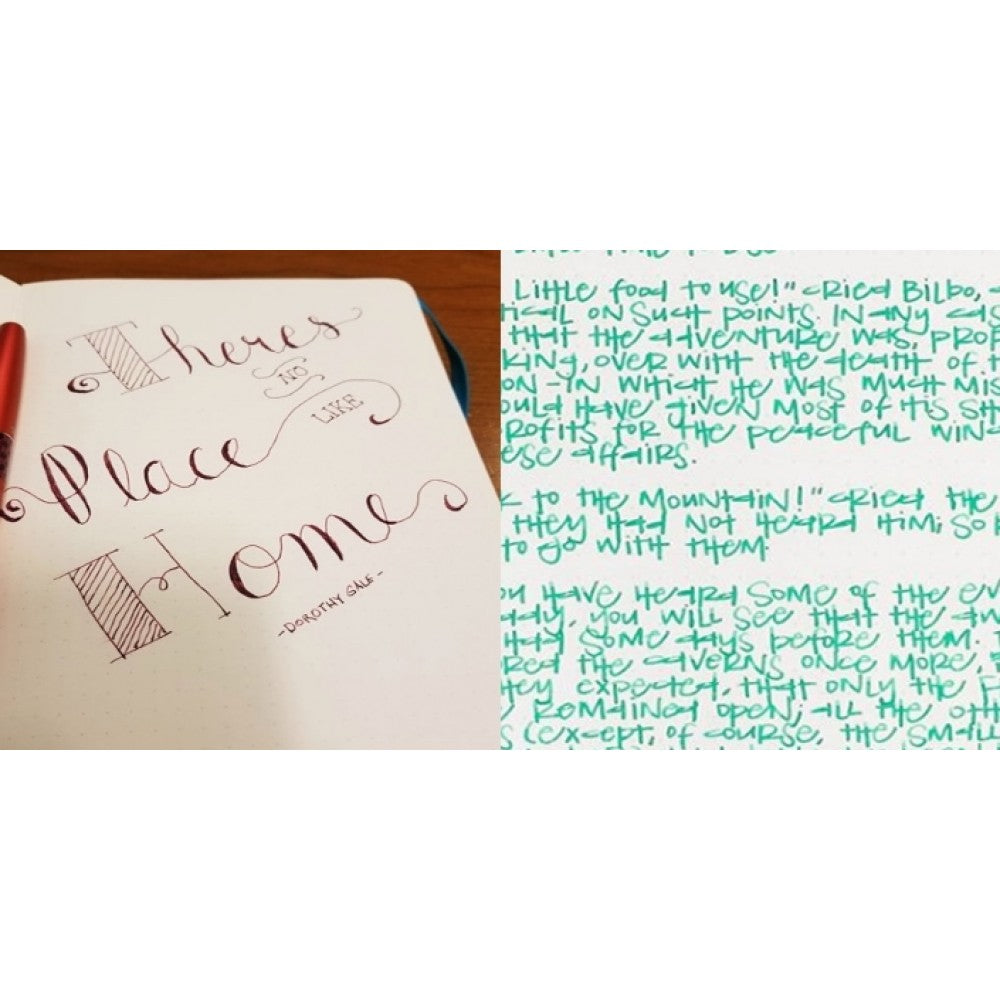 Theres
NO
LIKE
Place
Home
-DOROTHY GALE-
Little food to use!" cried Bilbo,
ON SUCH POINTS. IN ANY
THAT THE ADVENTURE WAS,
KING, OVER WITH THE DEATH OF
ON - IN WHICH HE WAS MUCH
HAVE GIVEN MOST OF HIS
FOR THE PEACEFUL
AFFAIRS.
TO THE MOUNTAIN!" CRIED THE
THEY HAD NOT HEARD HIM; SO
TO GO WITH THEM.
HAVE HEARD SOME OF THE
YOU WILL SEE THAT THE
SOME DAYS BEFORE THEM.
THE CAVERNS ONCE MORE,
EXPECTED, THAT ONLY THE
REMAINED OPEN; ALL THE
(EXCEPT, OF COURSE, THE